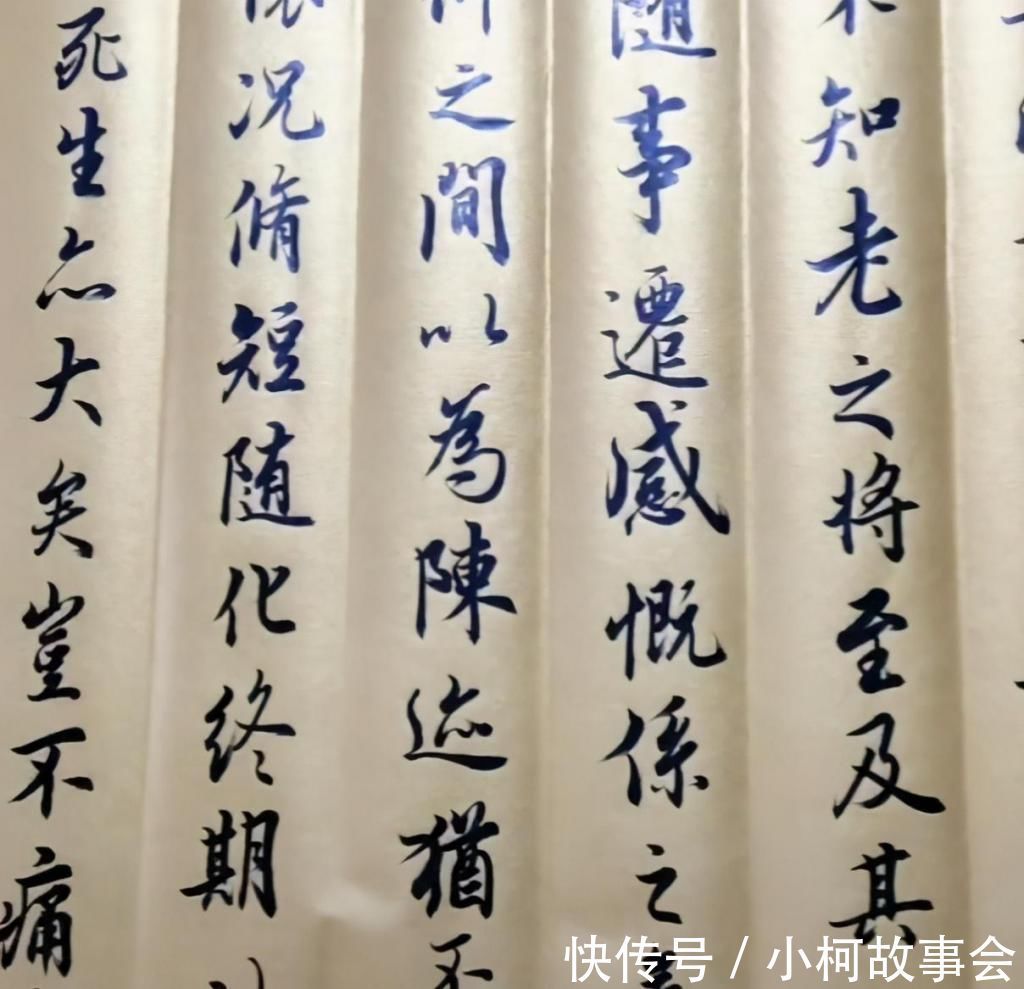 知老之将至及其
随事遷感慨係之
之間以為陳迹猶不
况脩短随化终期
死生亦大矣豈不痛
快传号 / 小柯故事会